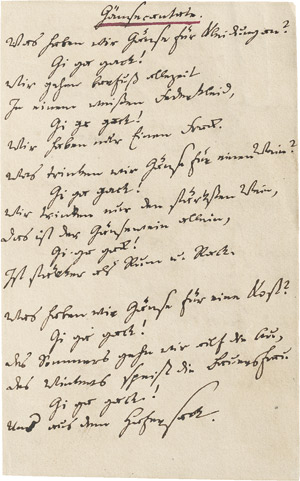 Gänsecantate.
Was haben wir Gänse für Kleidung an?
Gi ga gack!
Wir gehen barfuß allezeit
In einem weißen Federkleid,
Gi ga gack!
Wir haben nur Einen Frack.
Was trinken wir Gänse für einen Wein?
Gi ga gack!
Wir trinken nur den stärksten Wein,
Das ist der Gänsewein allein,
Gi ga gack!
Ist stärker als Rum u. Rack.
Was haben wir Gänse für eine Kost?
Gi ga gack!
Des Sommers gehn wir auf die Au,
Des Winters speist die Bauersfrau
Gi ga gack!
Uns aus dem Hafersack.